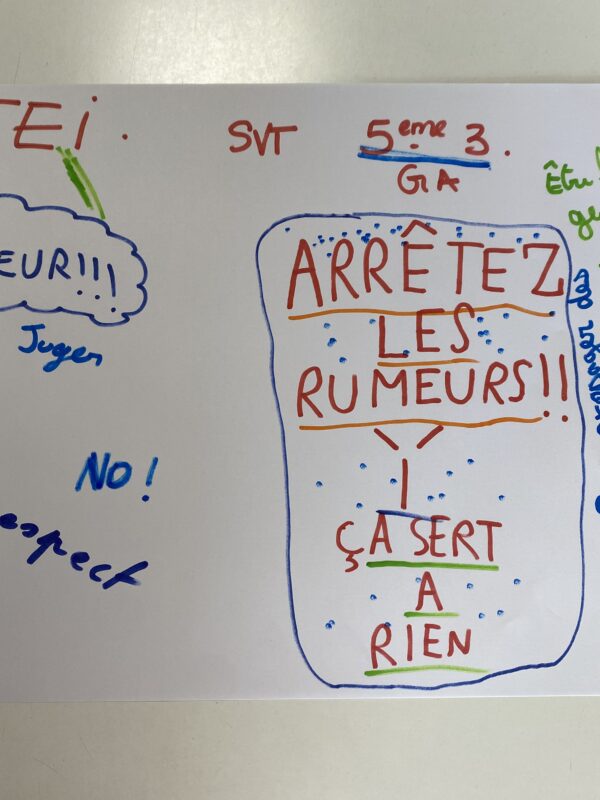 TEi.
SVT 5eme 3.
GA
EUR!!!
Juger
NO!
espect
ARRÊTEZ
LES
RUMEURS!!
ÇA SERT
A
RIEN
Être